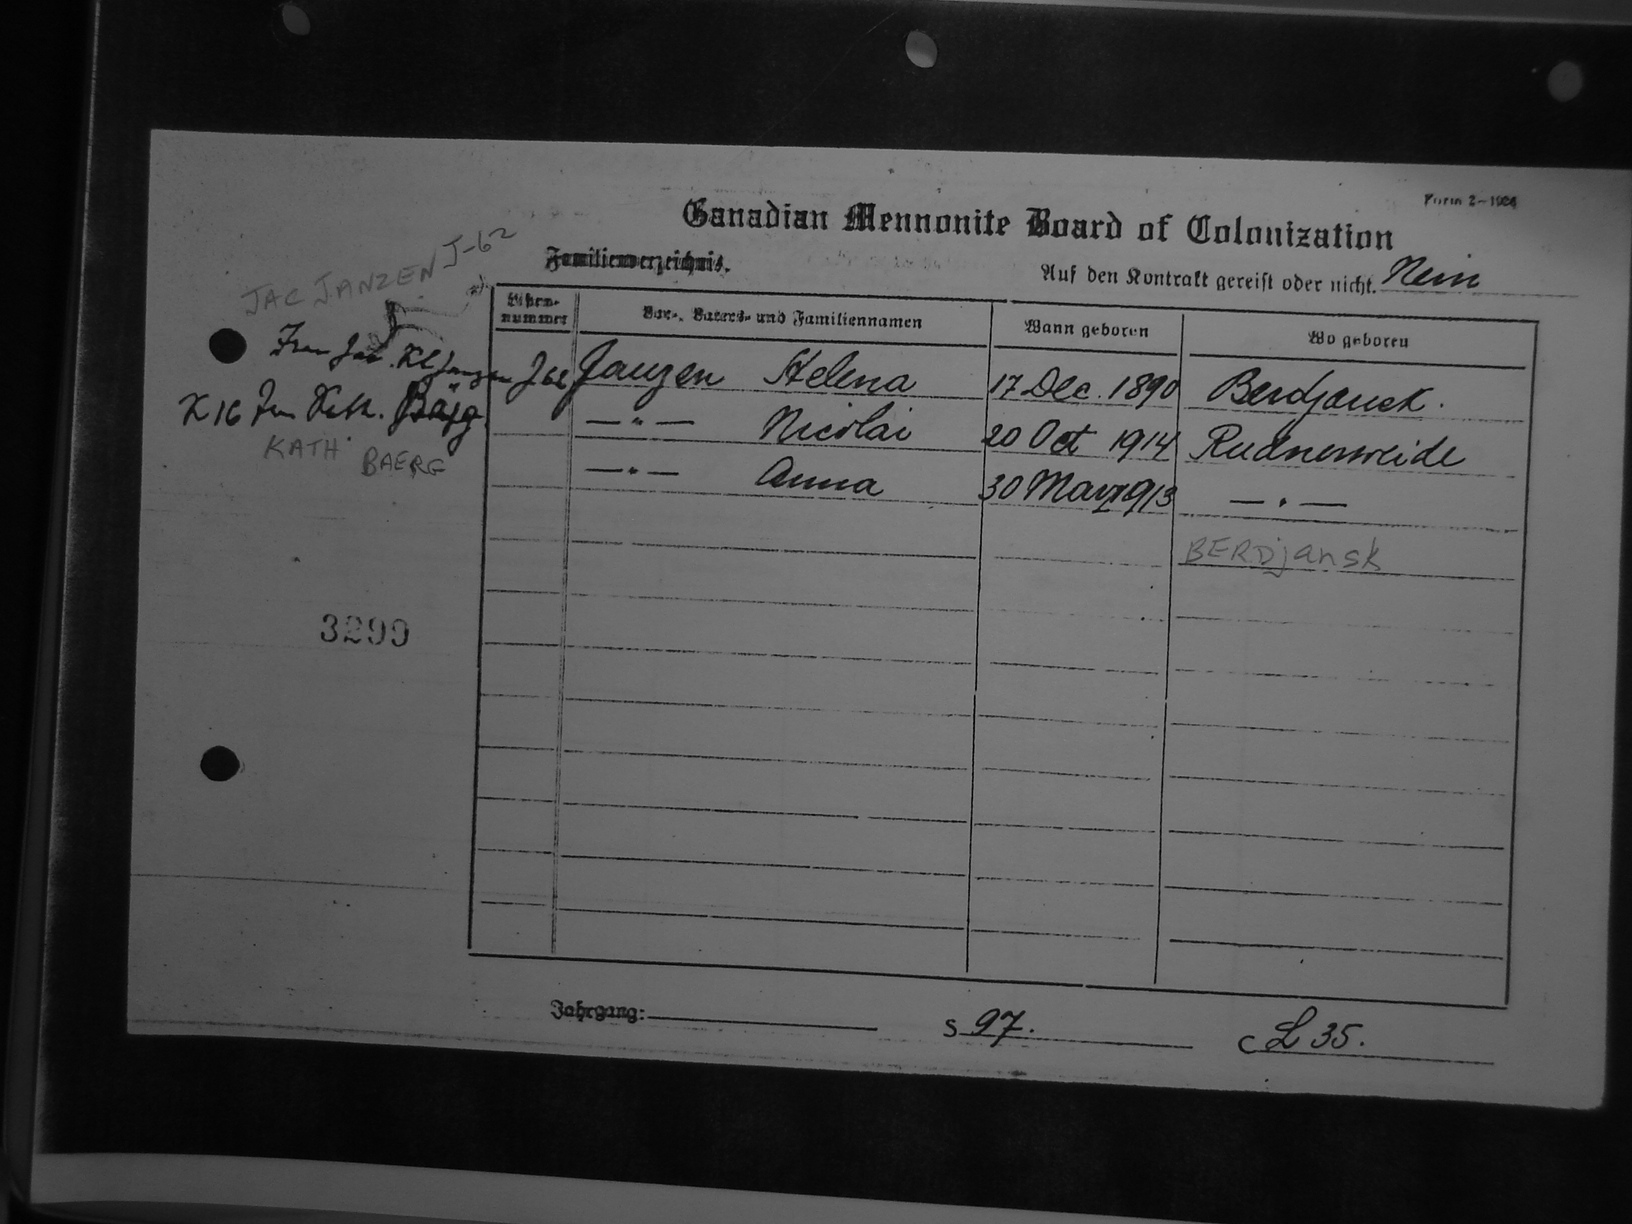 Form 2-1926
Canadian Mennonite Board of Colonization
Familienverzeichnis.
Auf den Kontrakt gereist oder nicht. Nein
JAC JANZEN J-62
Listen-nummer
Vor-, Vaters- und Familiennamen
Wann geboren
Wo geboren
Frau Jac. Kl Janzen
J62 Janzen Helena 17 Dec. 1890 Berdjansk.
K16 Frau Kath. Bärg
—"— Nicolai 20 Oct 1914 Rudnerweide
KATH BAERG
—"— Anna 30 Marz 1913 —"—
BERDjansk
3299
Jahrgang:
S 97.
C L 35.